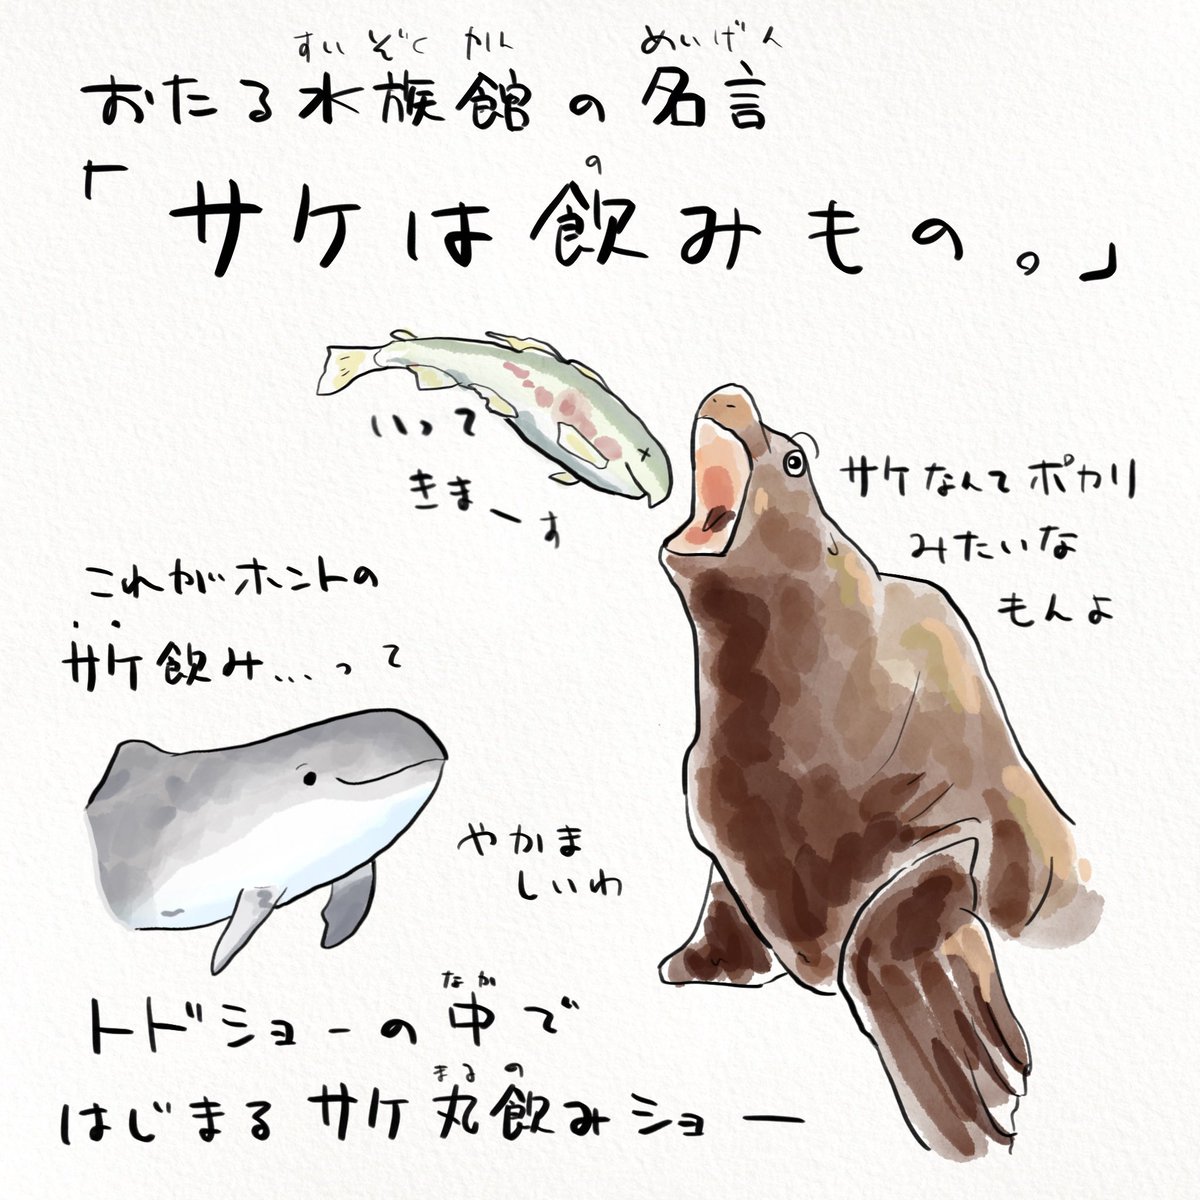 すいぞくかん めいげん
おたる水族館の名言
の
「サケは飲みもの。」
いって
きまーす
サケなんてポカリ
みたいな
もんよ
これがホントの
サケ飲み…って
やかま
しいわ
なか
トドショーの中で
まるの
はじまるサケ丸飲みショー